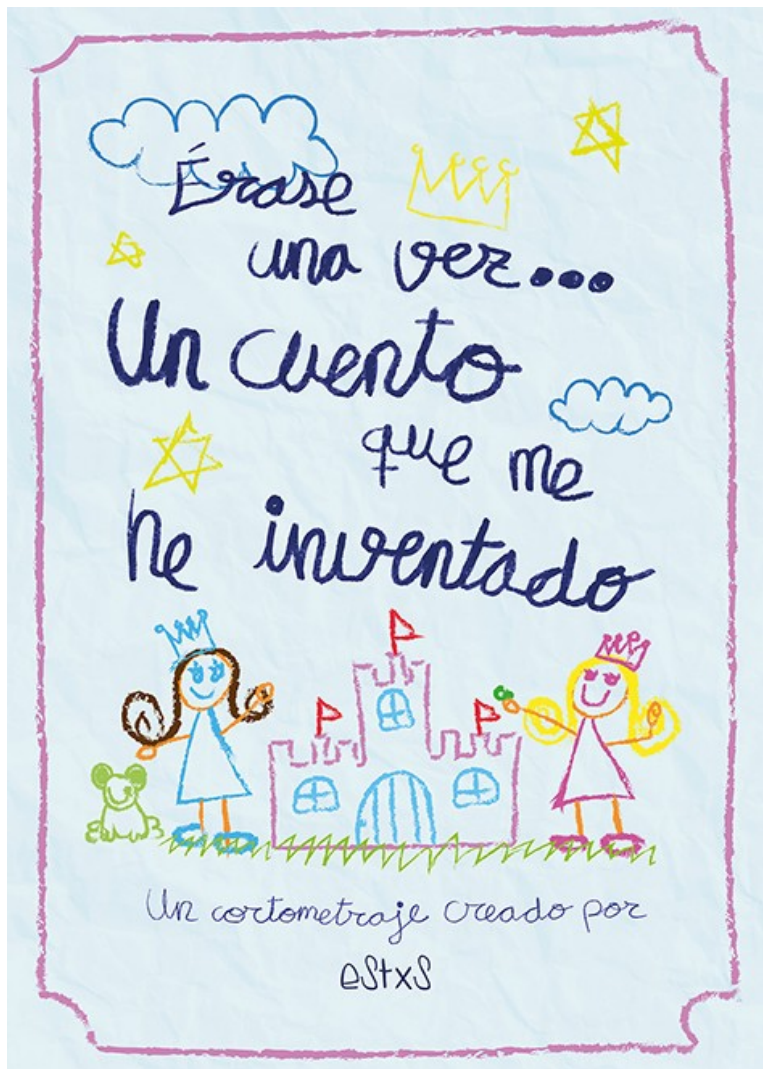 Érase
una vez...
Un cuento
que me
he inventado
Un cortometraje creado por
eStxS